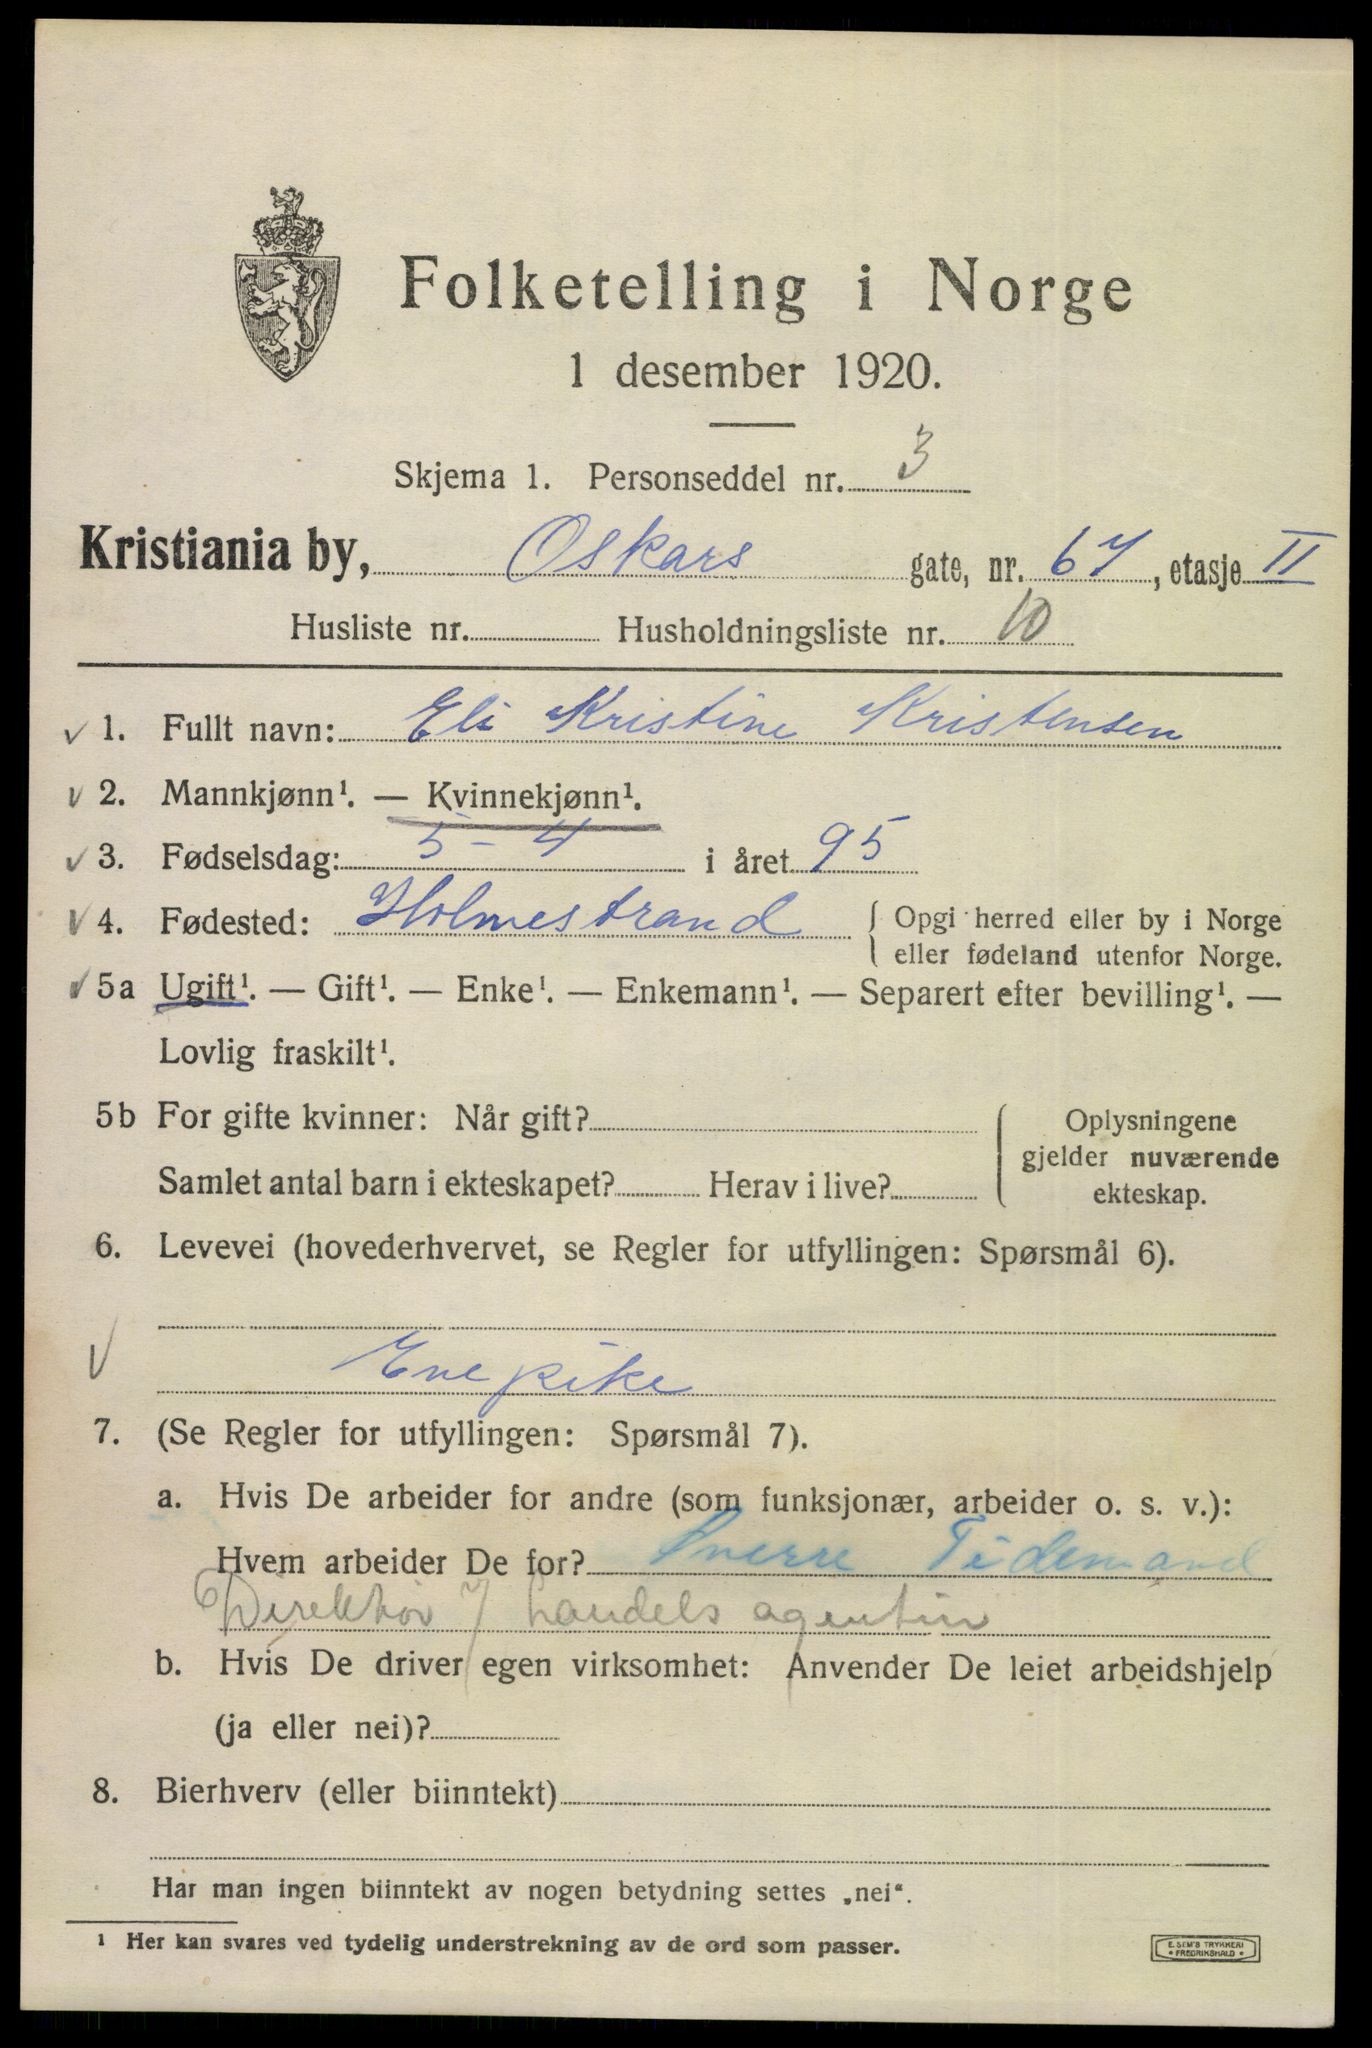 Folketelling i Norge
1 desember 1920.
Skjema 1. Personseddel nr. 3
Kristiania by, Oskars gate, nr. 67, etasje II
Husliste nr. Husholdningsliste nr. 10
✓ 1. Fullt navn: Eli Kristine Kristensen
✓ 2. Mannkjønn¹. — Kvinnekjønn¹.
✓ 3. Fødselsdag: 5 - 4 i året 95
✓ 4. Fødested: Holmestrand { Opgi herred eller by i Norge
eller fødeland utenfor Norge.
✓ 5a Ugift¹. — Gift¹. — Enke¹. — Enkemann¹. — Separert efter bevilling¹. —
Lovlig fraskilt¹.
5b For gifte kvinner: Når gift? Oplysningene
gjelder nuværende
Samlet antal barn i ekteskapet? Herav i live? ekteskap.
6. Levevei (hovederhvervet, se Regler for utfyllingen: Spørsmål 6).
✓ Enepike
7. (Se Regler for utfyllingen: Spørsmål 7).
a. Hvis De arbeider for andre (som funksjonær, arbeider o. s. v.):
Hvem arbeider De for? Sverre Tidemand
Direktør / handels agentur
b. Hvis De driver egen virksomhet: Anvender De leiet arbeidshjelp
(ja eller nei)?
8. Bierhverv (eller biinntekt)
Har man ingen biinntekt av nogen betydning settes „nei“.
¹ Her kan svares ved tydelig understrekning av de ord som passer.
E. SEM'S TRYKKERI
• FREDRIKSHALD •